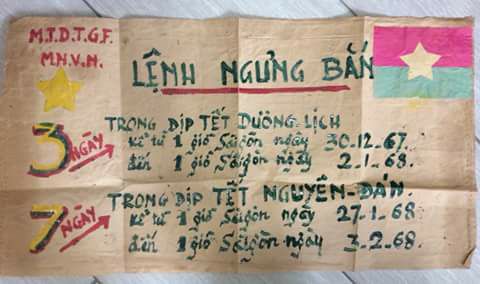 M.T.D.T.G.F.
M.N.V.N.
LỆNH NGƯNG BẮN
3 NGÀY
TRONG DỊP TẾT DƯƠNG-LỊCH
kể từ 1 giờ Sàigòn ngày 30.12.67.
đến 1 giờ Sàigòn ngày 2.1.68.
7 NGÀY
TRONG DỊP TẾT NGUYÊN-ĐÁN.
kể từ 1 giờ Sàigòn ngày 27.1.68
đến 1 giờ Sàigòn ngày 3.2.68.